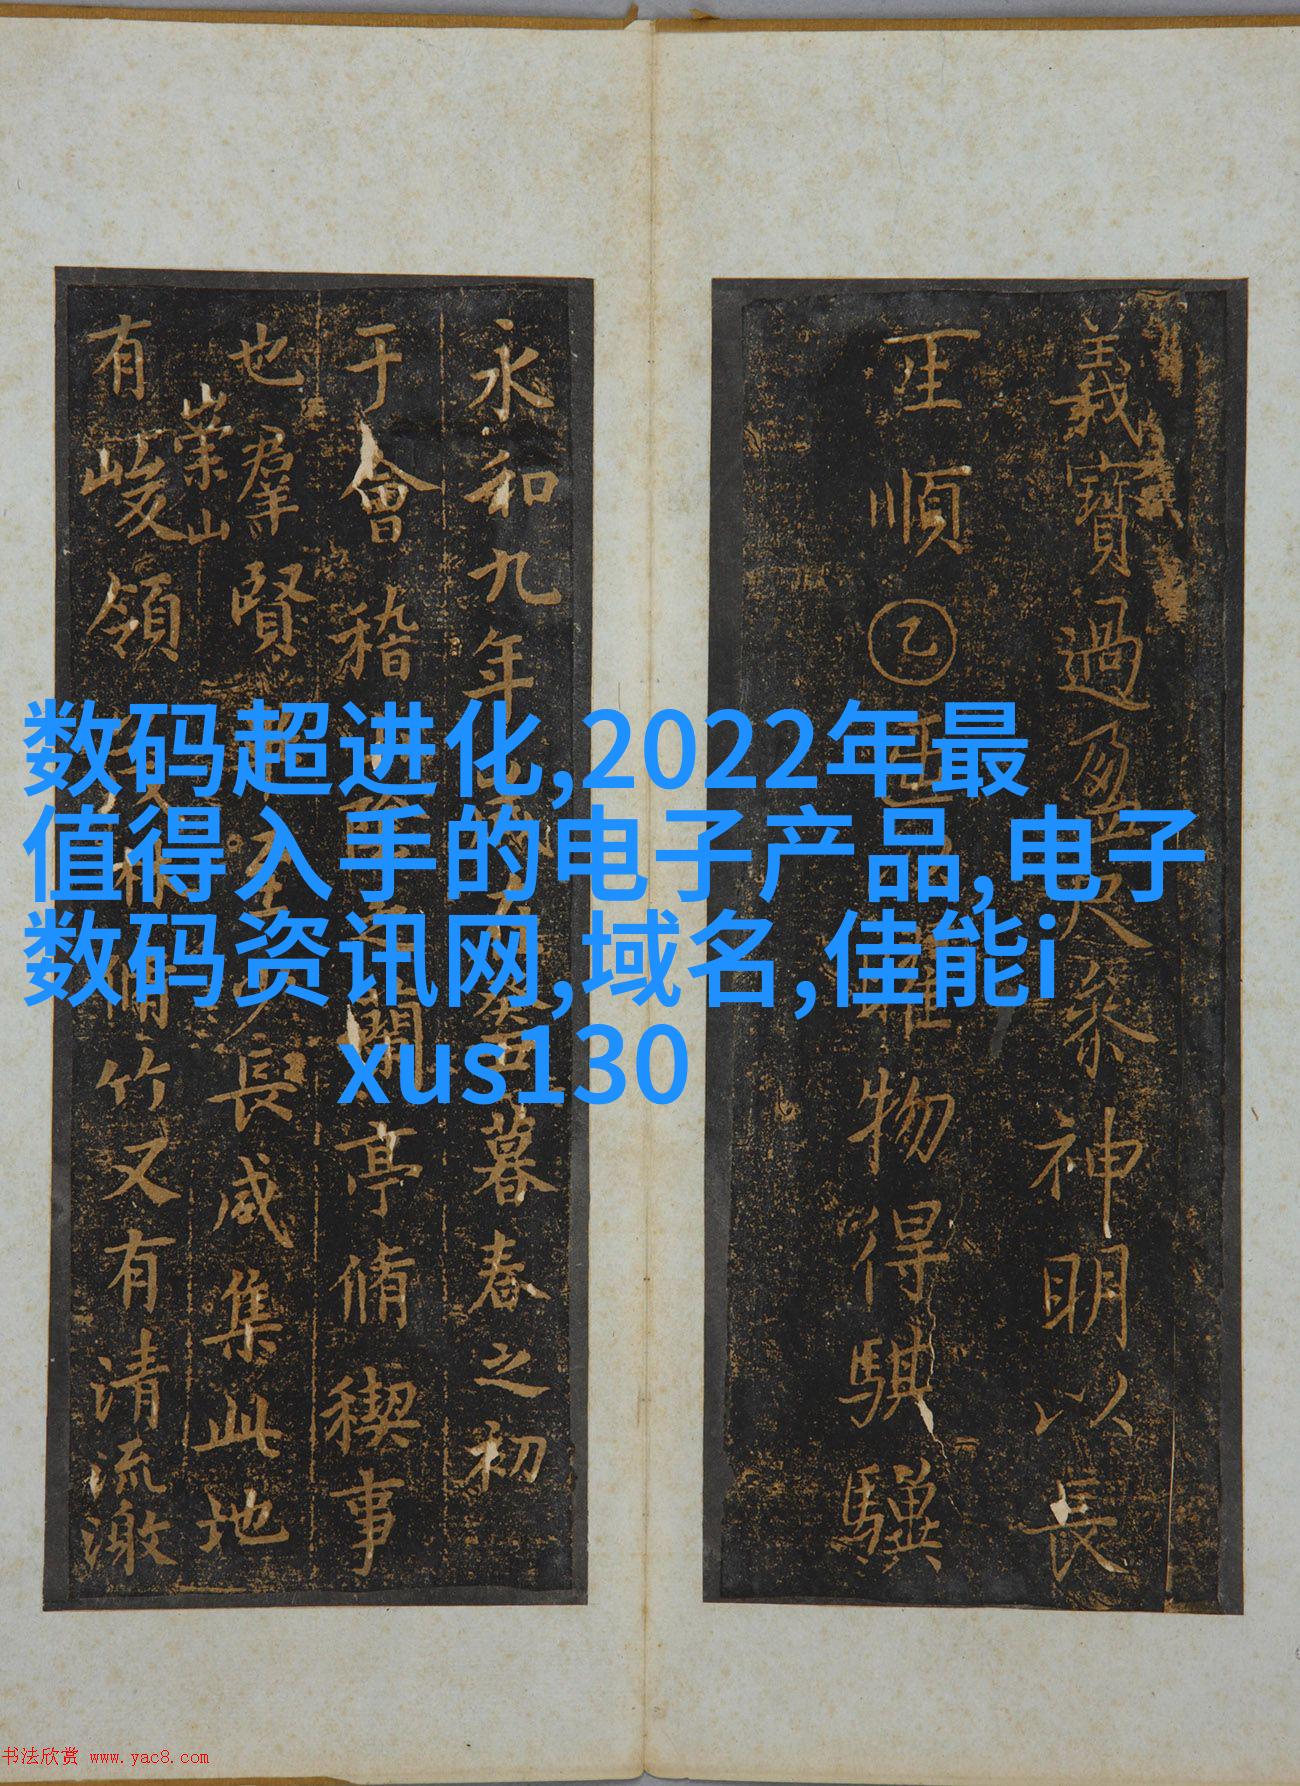 義寶過
神明以長
王順乙
物得騏驥
永和九年
暮春之初
于會稽
亭脩禊事
也羣賢
長咸集此地
崇山
有峻領
竹又有清流激
数码超进化,2022年最
值得入手的电子产品,电子
数码资讯网,域名,佳能i
xus130
书法欣赏 www.yac8.com